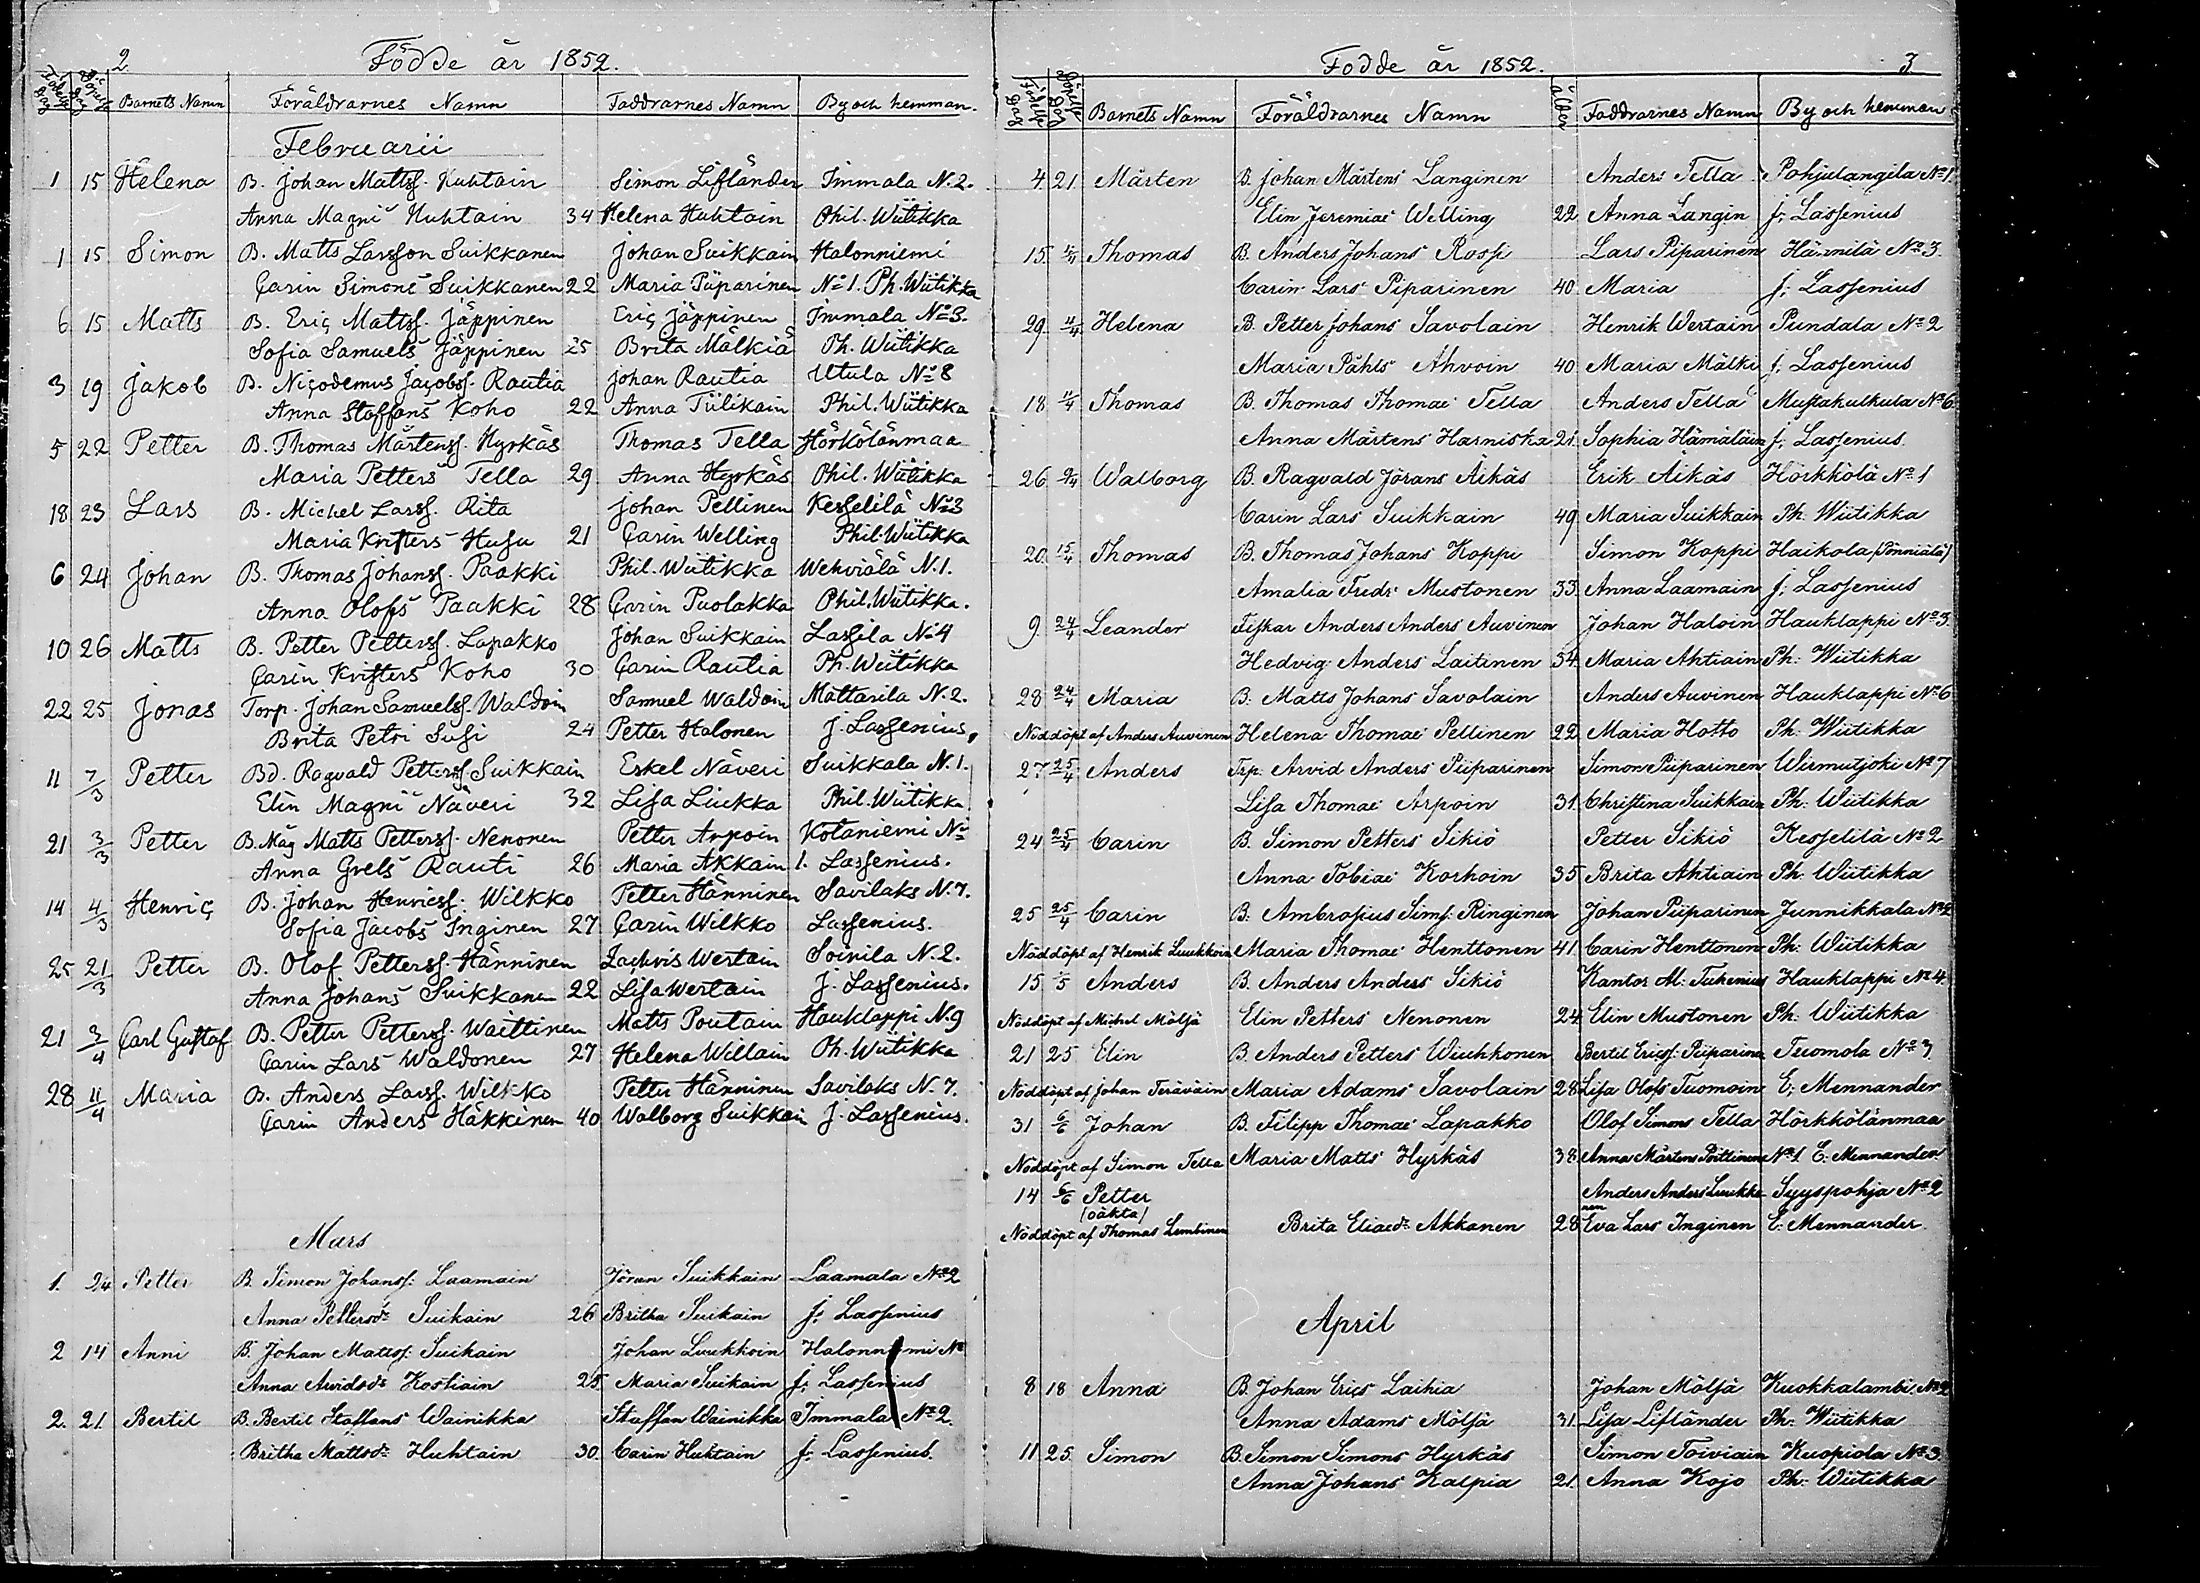 2. Födde år 1852.
Födelse Dag Döpelse Dag Barnets Namn Föräldrarnes Namn Faddrarnes Namn By och hemman.
Februarii
1 15 Helena B. Johan Mattsf. Huhtain Simon Lifländer Immala N. 2.
Anna Magni Huhtain 34 Helena Huhtain Phil. Wiitikka
1 15 Simon B. Matts Larsson Suikkanen Johan Suikkain Halonniemi
Carin Simons Suikkanen 22 Maria Piiparinen No 1. Ph. Wiitikka
6 15 Matts B. Eric Mattsf. Jäppinen Eric Jäppinen Immala No 3.
Sofia Samuels Jäppinen 25 Brita Mälkiä Ph. Wiitikka
3 19 Jakob B. Nicodemus Jacobsf. Rautia Johan Rautia Utula No 8
Anna Staffans Koho 22 Anna Tiilikain Phil. Wiitikka
5 22 Petter B. Thomas Mårtensf. Hyrkäs Thomas Tella Hörkölänmaa
Maria Petters Tella 29 Anna Hyrkäs Phil. Wiitikka
18 23 Lars B. Michel Larsf. Rita Johan Pellinen Kesselilä No 3
Maria Kristers Husu 21 Carin Welling Phil. Wiitikka
6 24 Johan B. Thomas Johansf. Paakki Phil. Wiitikka Wehviälä N. 1.
Anna Olofs Paakki 28 Carin Puolakka Phil. Wiitikka.
10 26 Matts B. Petter Pettersf. Lapakko Johan Suikkain Lassila No 4
Carin Kristers Koho 30 Carin Rautia Ph. Wiitikka
22 25 Jonas Torp. Johan Samuelsf. Waldoin Samuel Waldoin Mattarila N. 2.
Brita Petri Susi 24 Petter Halonen J. Lassenius,
11 7/3 Petter Bd. Ragvald Pettersf. Suikkain Eskel Näveri Suikkala N. 1.
Elin Magni Näveri 32 Lisa Liukka Phil. Wiitikka.
21 3/3 Petter B. Måg Matts Pettersf. Nenonen Petter Arpoin Kotaniemi No
Anna Grels Rauti 26 Maria Akkain 1. Lassenius.
14 4/3 Henric B. Johan Henricsf. Wilkko Petter Hänninen Savilaks N. 7.
Sofia Jacobs Inginen 27 Carin Wilkko Lassenius.
25 21/3 Petter B. Olof Pettersf. Hänninen Zachris Wertain Soinila N. 2.
Anna Johans Suikkanen 22 Lisa Wertain J. Lassenius.
21 3/4 Carl Gustaf B. Petter Pettersf. Waittinen Matts Poutain Hauklappi N. 9
Carin Lars Waldonen 27 Helena Willain Ph. Wiitikka
28 11/4 Maria B. Anders Larsf. Wilkko Petter Hänninen Savilaks N. 7.
Carin Anders Häkkinen 40 Walborg Suikkain J. Lassenius.
Mars
1. 24 Petter B. Simon Johansf: Laamain Jöran Suikkain Laamala No 2
Anna Pettersdr Suikain 26 Britha Suikain J: Lassenius
2 14 Anni B. Johan Mattsf: Suikain Johan Luukkoin Halonniemi No
Anna Arvidsdr Kostiain 25 Maria Suikain J: Lassenius
2. 21. Bertil B. Bertil Staffans Wainikka Staffan Wainikka Immala No 2.
Britha Mattsdr Huhtain 30 Carin Huhtain J: Lassenius.
Födde år 1852. 3
Födelse Dag Döpelse Dag Barnets Namn Föräldrarnes Namn ålder Faddrarnes Namn By och hemman
4 21 Mårten B. Johan Mårtens Langinen Anders Tella Pohjalangila No 1
Elin Jeremiae Welling 22 Anna Langin J: Lassenius
15 Thomas B. Anders Johans Rossi Lars Piparinen Härmilä No 3.
Carin Lars Piparinen 40 Maria J: Lassenius
29 11/4 Helena B. Petter Johans Savolain Henrik Wertain Pundala No 2
Maria Påhls Ahvoin 40 Maria Mälki J: Lassenius
18 11/4 Thomas B. Thomas Thomae Tella Anders Tella Mustakulkula No 6
Anna Mårtens Harniska 21. Sophia Hämäläin J: Lassenius.
26 2/4 Walborg B. Ragvald Jörans Äikäs Erik Äikäs Hörkkölä No 1
Carin Lars Suikkain 49 Maria Suikkain Ph. Wiitikka
20. 15/4 Thomas B. Thomas Johans Koppi Simon Koppi Haikola (Jonniälä)
Amalia Fredr. Mustonen 33. Anna Laamain J: Lassenius
9 24/4 Leander Fiskar Anders Anders Auvinen Johan Haloin Hauklappi No 3
Hedvig Anders Laitinen 34 Maria Ahtiain Ph: Wiitikka
28 24/4 Maria B. Matts Johans Savolain Anders Auvinen Hauklappi No 6
Nöddöpt af Anders Auvinen Helena Thomae Pellinen 22 Maria Hotto Ph: Wiitikka
27 25/4 Anders Trp. Arvid Anders Piiparinen Simon Piiparinen Wirmutjoki No 7
Lisa Thomae Arpoin 31. Christina Suikkain Ph: Wiitikka
24 25/4 Carin B. Simon Petters Sikiö Petter Sikiö Kesselilä No 2
Anna Tobiae Korhoin 35 Brita Ahtiain Ph. Wiitikka
25 25/4 Carin B. Ambrosius Sims: Ringinen Johan Piiparinen Junnikkala No 2
Nöddöpt af Henrik Luukkoin Maria Thomae Henttonen 41 Carin Henttonen Ph: Wiitikka
15 Anders B. Anders Anders Sikiö Kantor Al: Tukenius Hauklappi No 4
Nöddöpt af Michel Mölsä Elin Petters Nenonen 24 Elin Mustonen Ph: Wiitikka
21 25 Elin B. Anders Petters Wiuhkonen Bertil Ericsf: Piiparinen Tuomola No 3
Nöddöpt af Johan Teräväin Maria Adams Savolain 28 Lisa Olofs Tuomoin E: Mennander
31 6/6 Johan B. Filipp Thomae Lapakko Olof Simons Tella Hörkkölänmaa
Nöddöpt af Simon Tella Maria Matts Hyrkäs 38. Anna Mårtens Poittinen No 1 E: Mennander
14 6/6 Petter Anders Anders Luukka Syyspohja No 2
(oäkta) nen
Nöddöpt af Thomas Lembinen Brita Eliaedr Akkanen 28 Eva Lars Inginen E: Mennander.
April
8 18 Anna B. Johan Erics Laihia Johan Mölsä Kuokkalambi No 2
Anna Adams Mölsä 31. Lisa Lifländer Ph: Wiitikka
11 25 Simon B. Simon Simons Hyrkäs Simon Toiviain Kuopiola No 3.
Anna Johans Kalpia 21. Anna Kojo Ph: Wiitikka